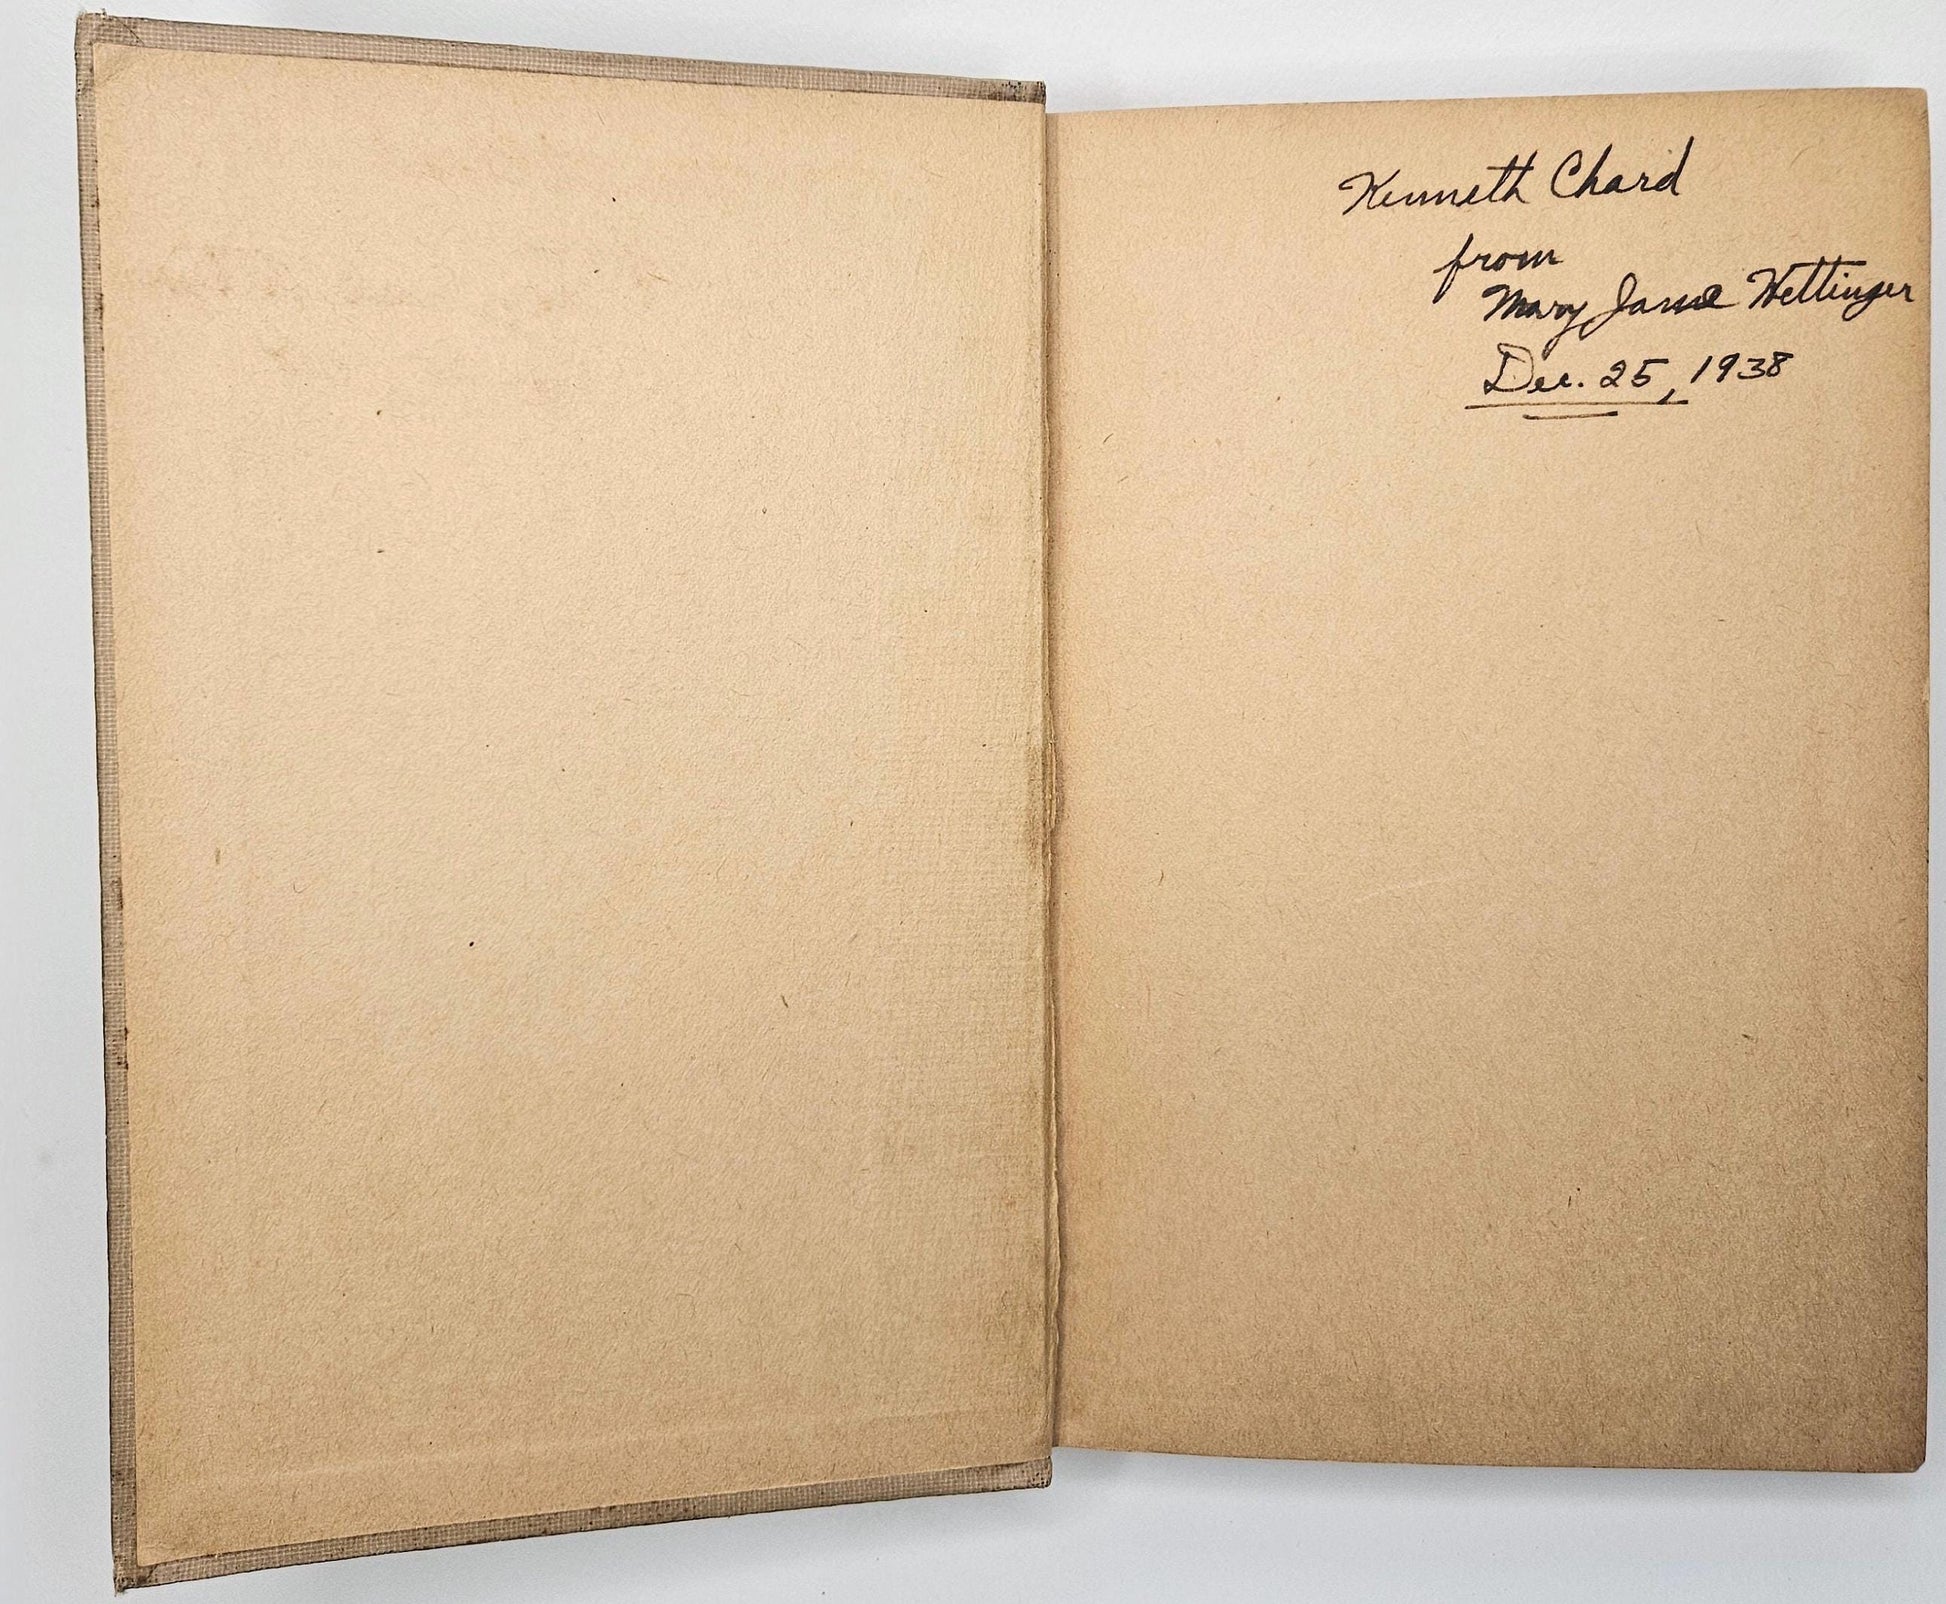 Kenneth Chard
from
Mary Jane Wettinger
Dec. 25, 1938